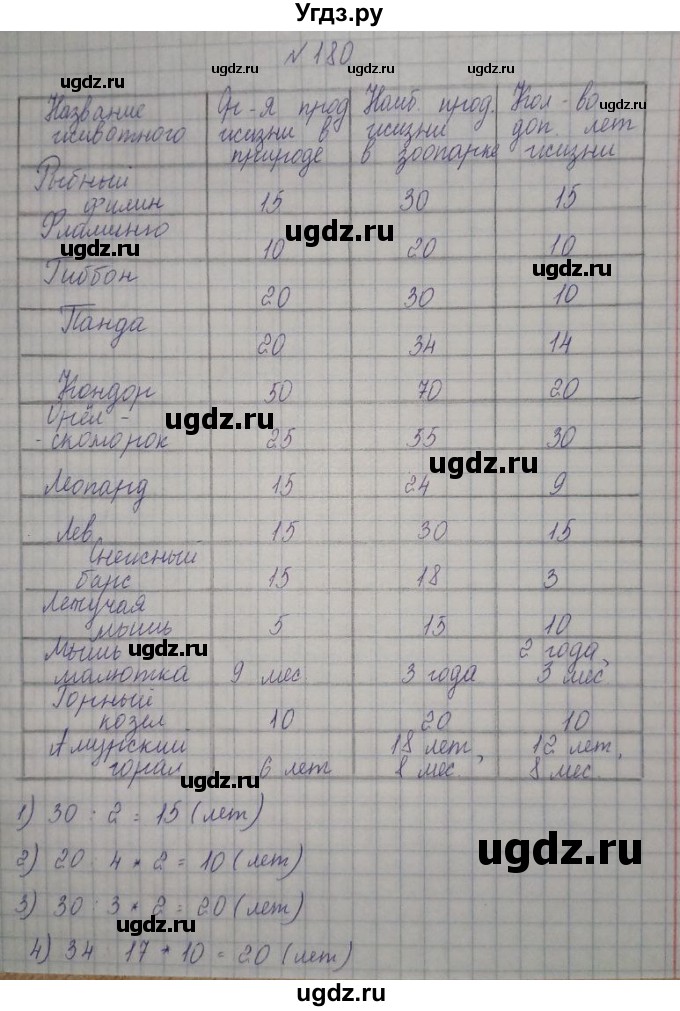 Угдз.ру
№ 180
ugdz.ru ugdz.ru ugdz.ru
Название животного Ср-я прод жизни в природе Наиб. прод. жизни в зоопарке Кол-во доп. лет жизни
ugdz.ru
ugdz.ru ugdz.ru
Рыбный филин 15 30 15
ugdz.ru ugdz.ru
Фламинго 10 20 10
ugdz.ru ugdz.ru
Гиббон 20 30 10
Панда 20 34 14
Кондор 50 70 20
ugdz.ru
Орёл-скоморох 25 55 30
ugdz.ru
Леопард 15 24 9
Лев 15 30 15
Снежный барс 15 18 3
Летучая мышь 5 15 10
ugdz.ru ugdz.ru
Мышь малютка 9 мес 3 года 2 года, 3 мес
Горный козёл 10 20 10
Амурский горал 6 лет 18 лет, 8 мес. 12 лет, 8 мес.
ugdz.ru
1) 30 : 2 = 15 (лет)
ugdz.ru
2) 20 : 4 * 2 = 10 (лет)
3) 30 : 3 * 2 = 20 (лет)
ugdz.ru
4) 34 17 * 10 = 20 (лет)
ugdz.ru